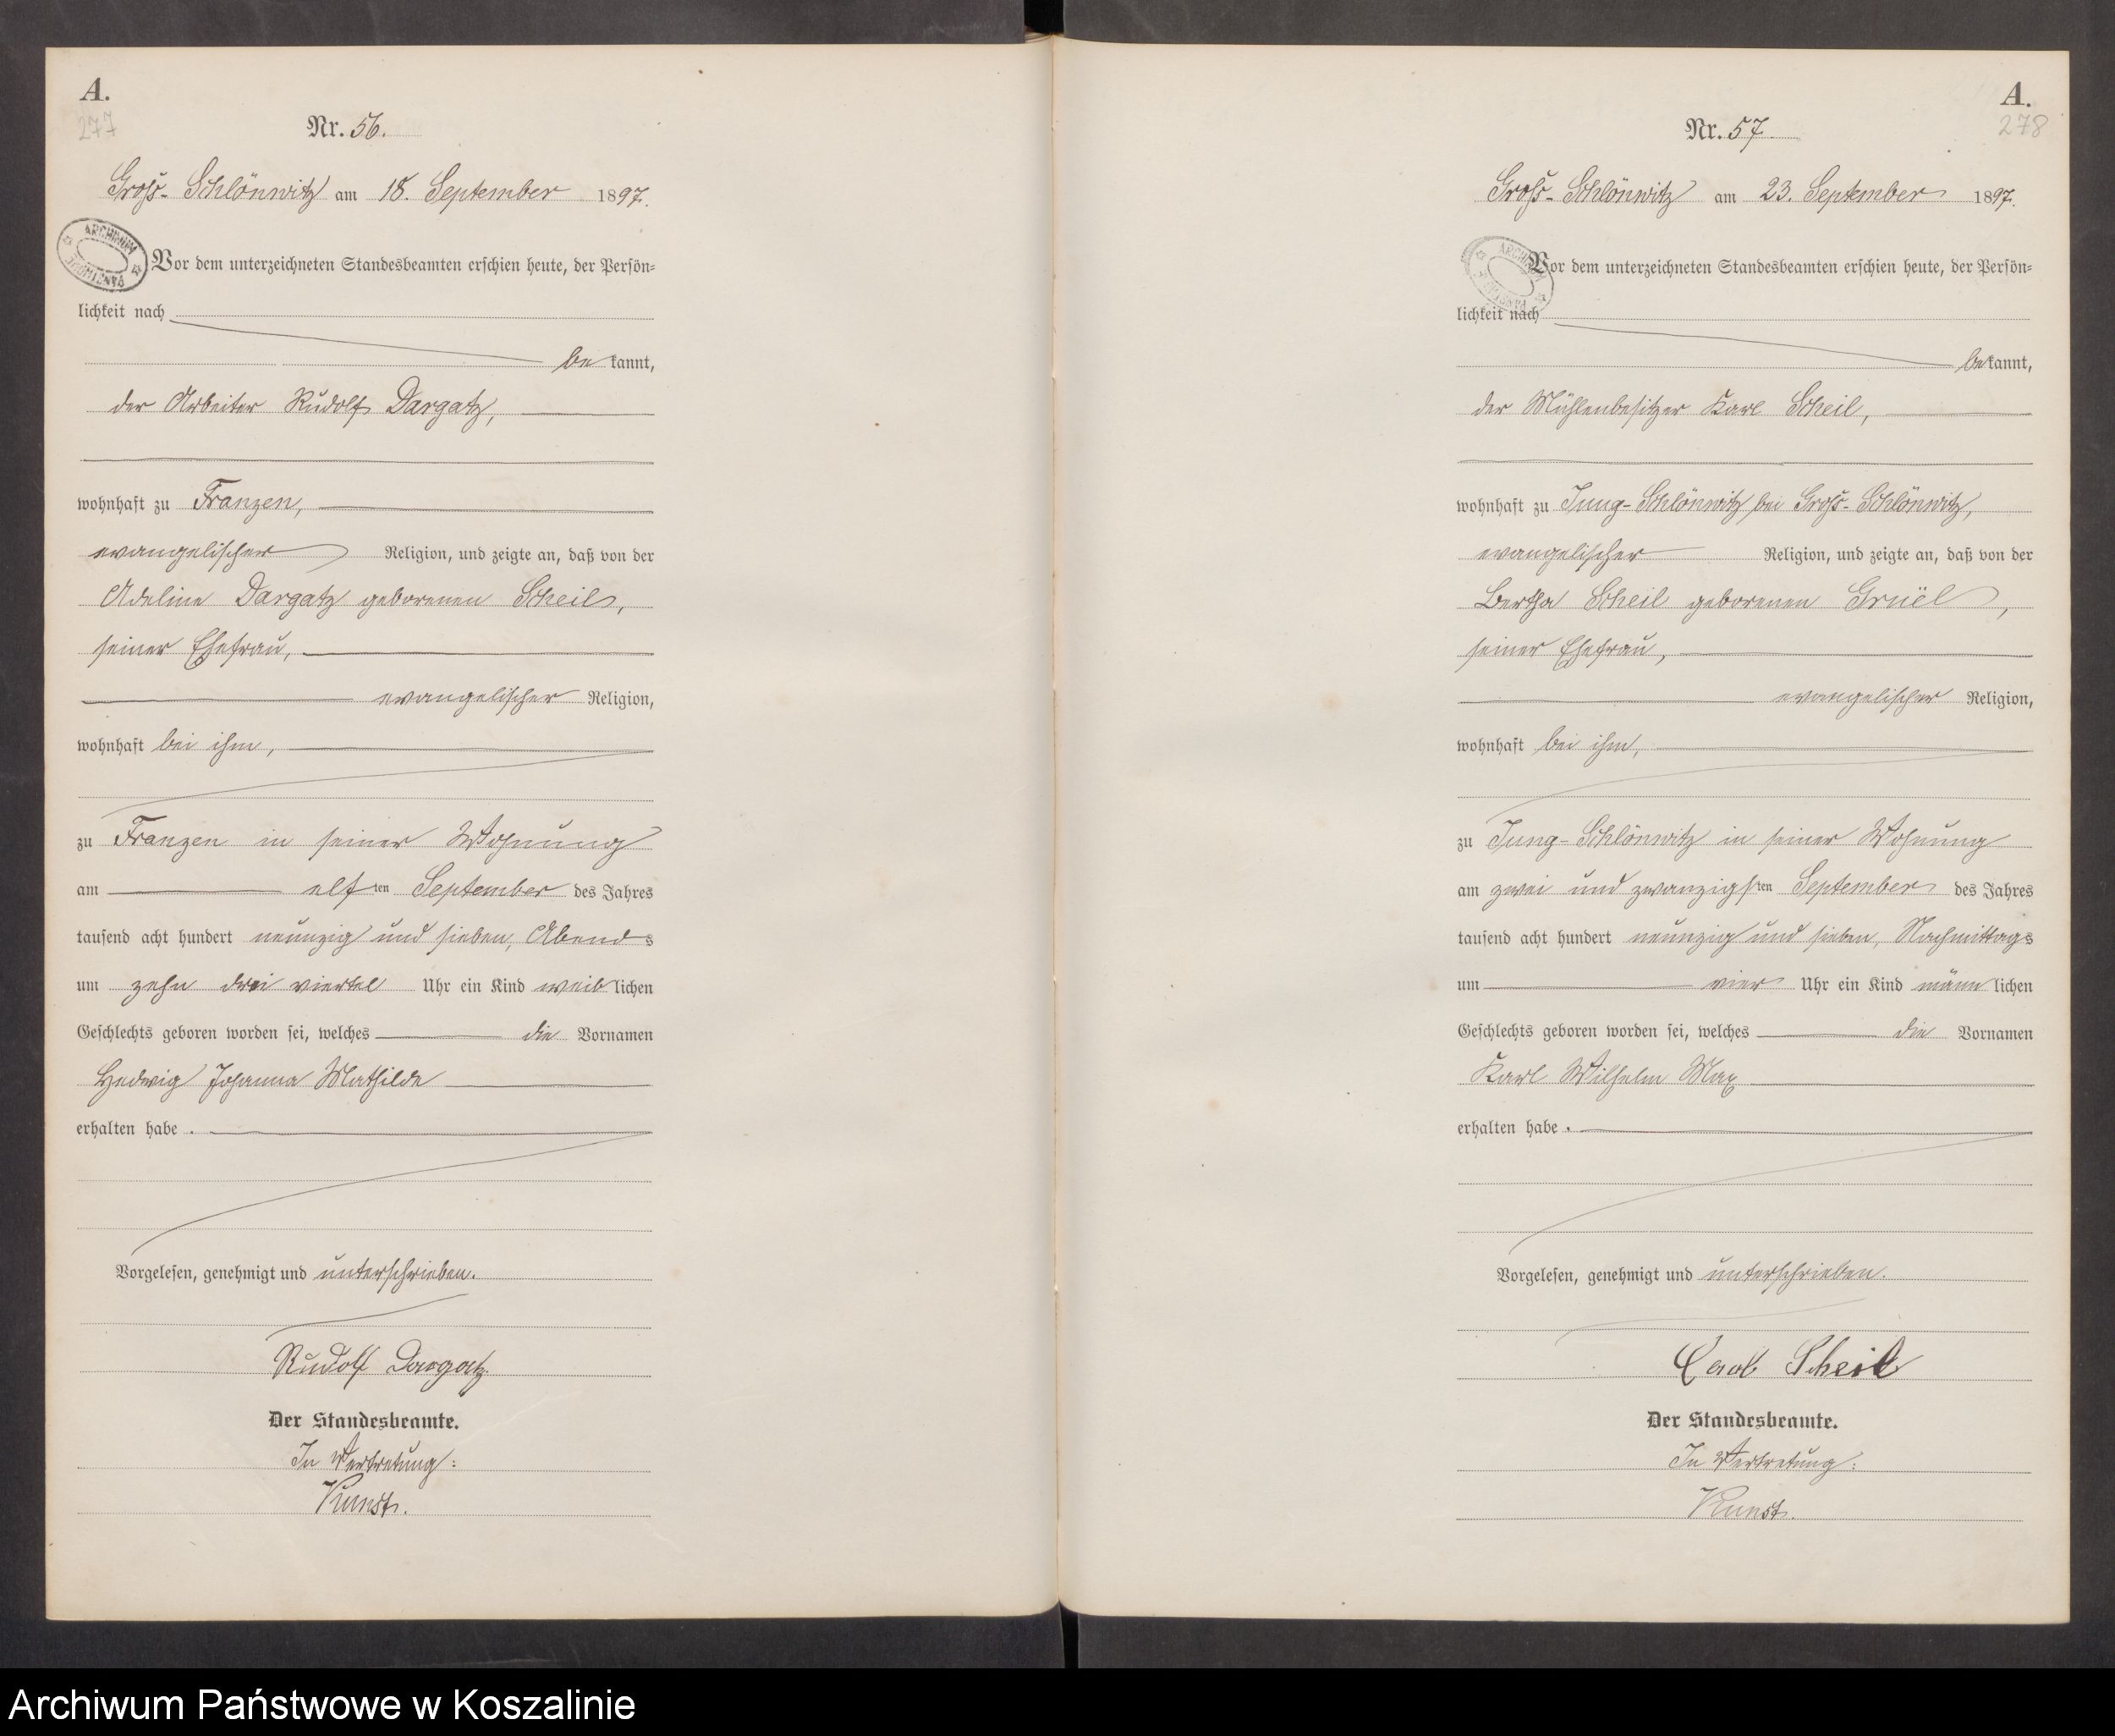 A.
277
Nr. 56.
Groß-Schlönwitz am 18. September 1897.
ARCHIWUM
PAŃSTWOWE
Vor dem unterzeichneten Standesbeamten erschien heute, der Persön=
lichkeit nach
bekannt,
der Arbeiter Rudolf Dargatz,
wohnhaft zu Franzen,
evangelischer Religion, und zeigte an, daß von der
Adeline Dargatz geborenen Scheil,
seiner Ehefrau,
evangelischer Religion,
wohnhaft bei ihm,
zu Franzen in seiner Wohnung
am elften September des Jahres
tausend acht hundert neunzig und sieben, Abends
um zehn drei viertel Uhr ein Kind weiblichen
Geschlechts geboren worden sei, welches die Vornamen
Hedwig Johanna Mathilde
erhalten habe.
Vorgelesen, genehmigt und unterschrieben.
Rudolf Dargatz
Der Standesbeamte.
In Vertretung:
Kunst.
A.
278
Nr. 57.
Groß-Schlönwitz am 23. September 1897.
Vor dem unterzeichneten Standesbeamten erschien heute, der Persön=
lichkeit nach
bekannt,
der Mühlenbesitzer Karl Scheil,
wohnhaft zu Jung-Schlönwitz bei Groß-Schlönwitz,
evangelischer Religion, und zeigte an, daß von der
Bertha Scheil geborenen Gruël,
seiner Ehefrau,
evangelischer Religion,
wohnhaft bei ihm,
zu Jung-Schlönwitz in seiner Wohnung
am zwei und zwanzigsten September des Jahres
tausend acht hundert neunzig und sieben, Nachmittags
um vier Uhr ein Kind männlichen
Geschlechts geboren worden sei, welches die Vornamen
Karl Wilhelm Max
erhalten habe.
Vorgelesen, genehmigt und unterschrieben.
Carl Scheil
Der Standesbeamte.
In Vertretung:
Kunst.
Archiwum Państwowe w Koszalinie